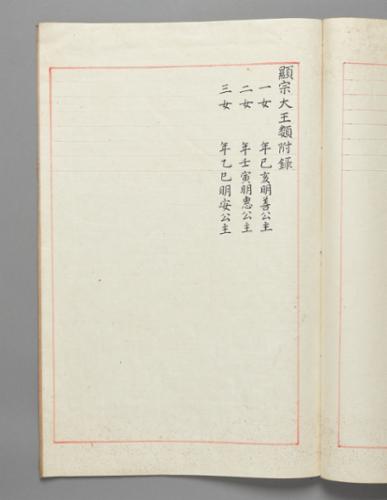 顯宗大王類附錄
一女 年己亥明善公主
二女 年壬寅明惠公主
三女 年乙巳明安公主